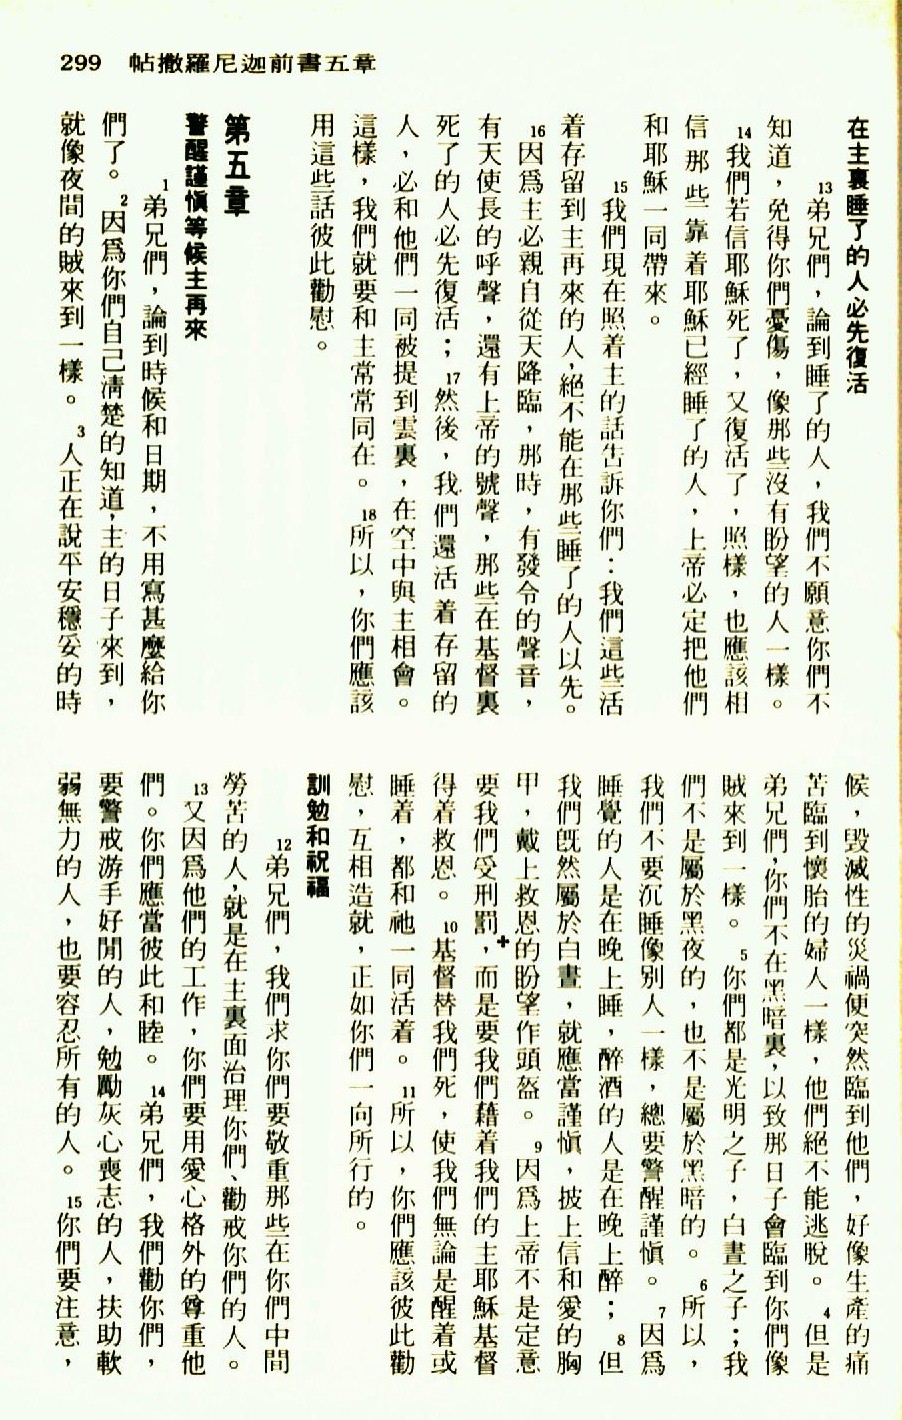 299 帖撒羅尼迦前書五章
在主裏睡了的人必先復活
13弟兄們，論到睡了的人，我們不願意你們不
知道，免得你們憂傷，像那些沒有盼望的人一樣。
14我們若信耶穌死了，又復活了，照樣，也應該相
信那些靠着耶穌已經睡了的人，上帝必定把他們
和耶穌一同帶來。
15我們現在照着主的話吿訴你們：我們這些活
着存留到主再來的人，絕不能在那些睡了的人以先。
16因爲主必親自從天降臨，那時，有發令的聲音，
有天使長的呼聲，還有上帝的號聲，那些在基督裏
死了的人必先復活；17然後，我們還活着存留的
人，必和他們一同被提到雲裏，在空中與主相會。
這樣，我們就要和主常常同在。18所以，你們應該
用這些話彼此勸慰。
第五章
警醒謹愼等候主再來
1弟兄們，論到時候和日期，不用寫甚麼給你
們了。2因爲你們自己淸楚的知道，主的日子來到，
就像夜間的賊來到一樣。3人正在說平安穩妥的時
候，毀滅性的災禍便突然臨到他們，好像生產的痛
苦臨到懷胎的婦人一樣，他們絕不能逃脫。4但是
弟兄們，你們不在黑暗裏，以致那日子會臨到你們像
賊來到一樣。5你們都是光明之子，白晝之子；我
們不是屬於黑夜的，也不是屬於黑暗的。6所以，
我們不要沉睡像別人一樣，總要警醒謹愼。7因爲
睡覺的人是在晚上睡，醉酒的人是在晚上醉；8但
我們旣然屬於白晝，就應當謹愼，披上信和愛的胸
甲，戴上救恩的盼望作頭盔。9因爲上帝不是定意
要我們受刑罰，而是要我們藉着我們的主耶穌基督
得着救恩。10基督替我們死，使我們無論是醒着或
睡着，都和祂一同活着。11所以，你們應該彼此勸
慰，互相造就，正如你們一向所行的。
訓勉和祝福
12弟兄們，我們求你們要敬重那些在你們中間
勞苦的人，就是在主裏面治理你們、勸戒你們的人。
13又因爲他們的工作，你們要用愛心格外的尊重他
們。你們應當彼此和睦。14弟兄們，我們勸你們，
要警戒游手好閒的人，勉勵灰心喪志的人，扶助軟
弱無力的人，也要容忍所有的人。15你們要注意，